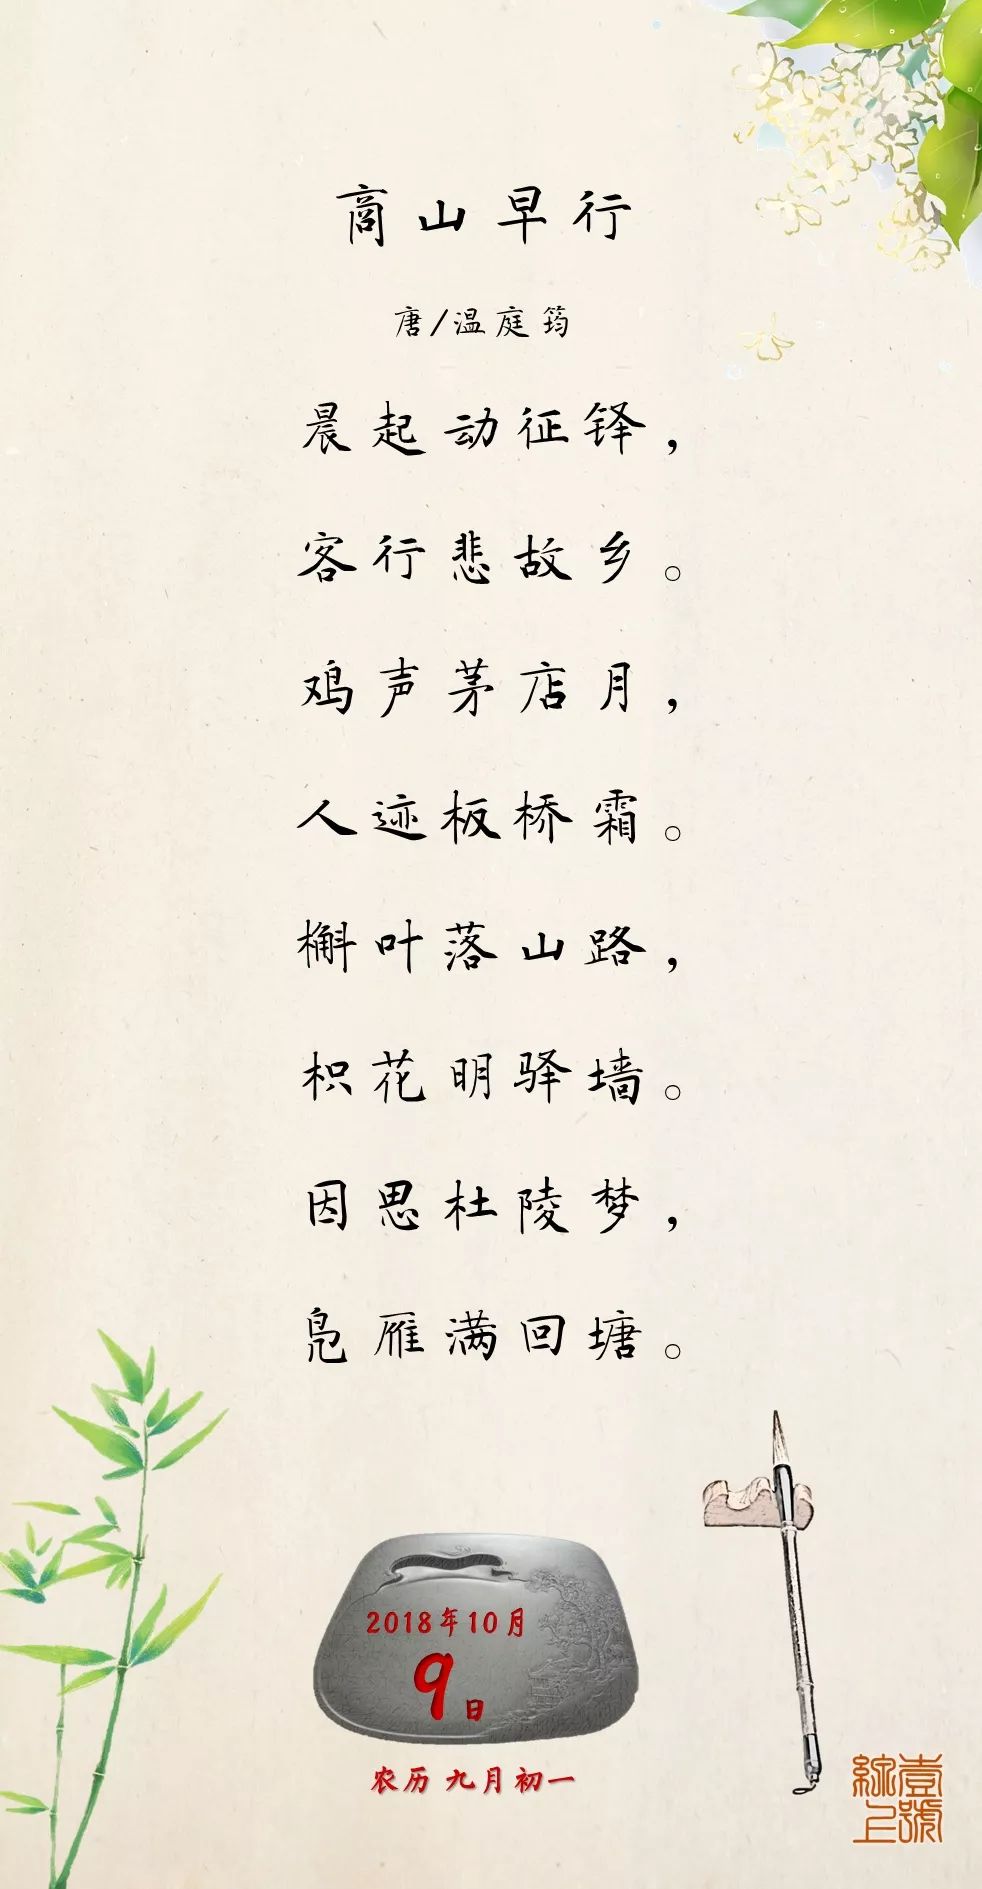 商山早行
唐/温庭筠
晨起动征铎，
客行悲故乡。
鸡声茅店月，
人迹板桥霜。
槲叶落山路，
枳花明驿墙。
因思杜陵梦，
凫雁满回塘。
2018年10月
9日
农历 九月初一